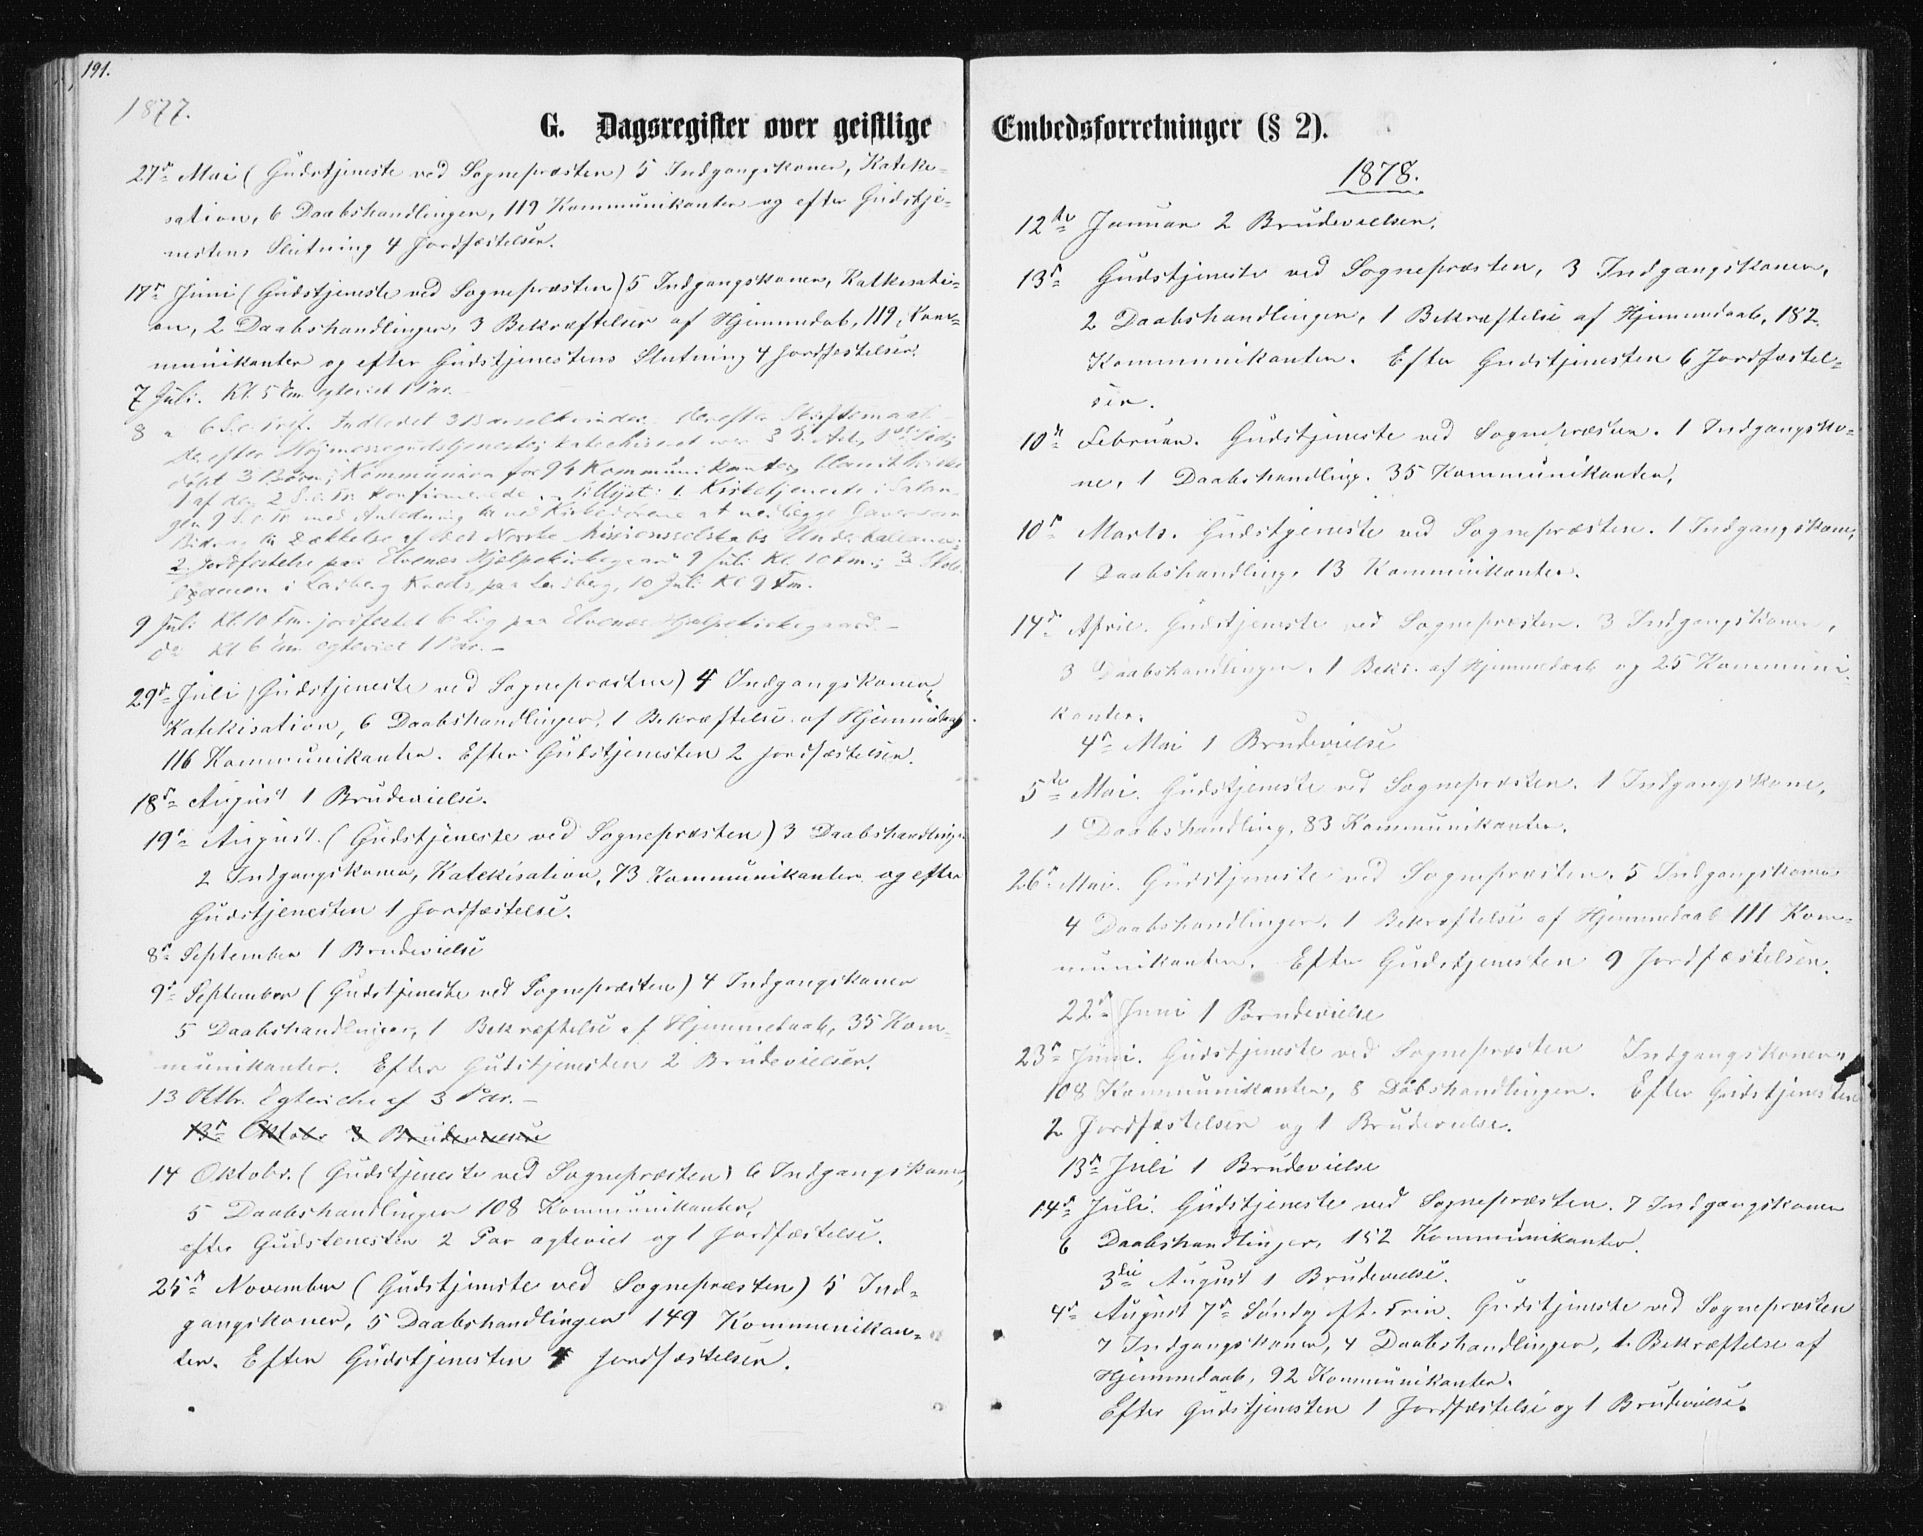 191.
1877.
G. Dagsregister over geistlige
27de Mai (Gudstjeneste ved Sognepræsten) 5 Indgangskoner, Kateke-
sation, 6 Daabshandlinger, 119 Kommunikanter og efter Gudstje-
nestens Slutning 4 Jordfæstelser.
17de Juni (Gudstjeneste ved Sognepræsten) 5 Indgangskoner, Katkesati-
on, 2 Daabshandlinger, 3 Bekræftelser af Hjemmedab, 119, Kom-
munikanter og efter Gudstjenestens Slutning 4 Jordfæstelser.
7 Juli. Kl. 5 Em. egteviet 1 Par.
8 " 6 S. e. Tref. Indledet 3 Barselkvinder. derefter Skriftemaal
derefter Høimessegudstjeneste; katechiseret over 3
døbt 3 Børn; Kommunion for 94 Kommunikanter,
1 af den 2 S. e. Tr. Konfirmerede. tillyst: 1. Kirketjeneste i Salan-
gen 9 S. e. Tr. med Anledning til ved Kirkedørene at nedlægge Gaver som
Bidrag til Dækkelse af det Norske Missionsselskabs Underballance;
2 Jordfæstelse paa Elvenes Hjælpekirkegaard 9 Juli Kl. 10 Fm.; 3 Skole
examen i Kreds, paa 10 Juli Kl 9 Fm.
9 Juli Kl. 10 Fm. jordfæstet 6 Lig paa Elvenes Hjælpekirkegaard. -
do Kl 6 Em. egteviet 1 Par. -
29de Juli (Gudstjeneste ved Sognepræsten) 4 Indgangskoner,
Katekisation, 6 Daabshandlinger, 1 Bekræftelse af Hjemmedaab.
116 Kommunikanter. Efter Gudstjenesten 2 Jordfæstelser.
18de August 1 Brudevielse.
19de August. (Gudstjeneste ved Sognepræsten) 3 Daabshandlinger
2 Indgangskoner, Katekisation, 73 Kommunikanter og efter
Gudstjenesten 1 Jordfæstelse.
8de September 1 Brudevielse
9de September (Gudstjeneste ved Sognepræsten) 4 Indgangskoner
5 Daabshandlinger, 1 Bekræftelse af Hjemmedaab, 35 Kom-
munikanter. Efter Gudstjenesten 2 Brudevielser.
13 Oktbr. Egtevielse af 3 Par. -
13de Oktobr 3 Brudevielse
14 Oktobr. (Gudstjeneste ved Sognepræsten) 6 Indgangskoner,
5 Daabshandlinger 108 Kommunikanter,
efter Gudstenesten 2 Par egteviet og 1 Jordfæstelse.
25de November (Gudstjeneste ved Sognepræsten) 5 Ind-
gangskoner, 5 Daabshandlinger 149 Kommunikan-
ter. Efter Gudstjenesten 4 Jordfæstelser.
Embedsforretninger (§ 2).
1878.
12te Januar 2 Brudevielser.
13de Gudstjeneste ved Sognepræsten, 3 Indgangskoner,
2 Daabshandlinger, 1 Bekræftelse af Hjemmedaab, 182
Kommunikanter. Efter Gudstjenesten 6 Jordfæstel-
ser.
10de Februar. Gudstjeneste ved Sognepræsten. 1 Indgangsko-
ne, 1 Daabshandling. 35 Kommunikanter,
10de Marts. Gudstjeneste ved Sognepræsten. 1 Indgangskone,
1 Daabshandling, 13 Kommunikanter.
14de April. Gudstjeneste ved Sognepræsten. 3 Indgangskoner,
3 Daabshandlinger. 1 Bekr. af Hjemmedaab og 25 Kommuni-
kanter.
4de Mai 1 Brudevielse
5te Mai. Gudstjeneste ved Sognepræsten. 1 Indgangskone,
1 Daabshandling, 83 Kommunikanter.
26de Mai. Gudstjeneste ved Sognepræsten. 5 Indgangskoner
4 Daabshandlinger. 1 Bekræftelse af Hjemmedaab 111 Kom-
munikanter. Efter Gudstjenesten 9 Jordfæstelser.
22de Juni 1 Brudevielse
23de Juni. Gudstjeneste ved Sognepræsten Indgangskoner,
108 Kommunikanter, 8 Døbshandlinger. Efter Gudstjenesten
2 Jordfæstelser og 1 Brudevielse.
13de Juli 1 Brudevielse
14de Juli. Gudstjeneste ved Sognepræsten. 7 Indgangskoner
6 Daabshandlinger, 152 Kommunikanter.
3die August 1 Brudevielse.
4de August 7de Søndg eft. Trin. Gudstjeneste ved Sognepræsten
7 Indgangskoner, 4 Daabshandlinger, 1 Bekræftelse af
Hjemmedaab, 92 Kommunikanter.
Efter Gudstjenesten 1 Jordfæstelse og 1 Brudevielse.